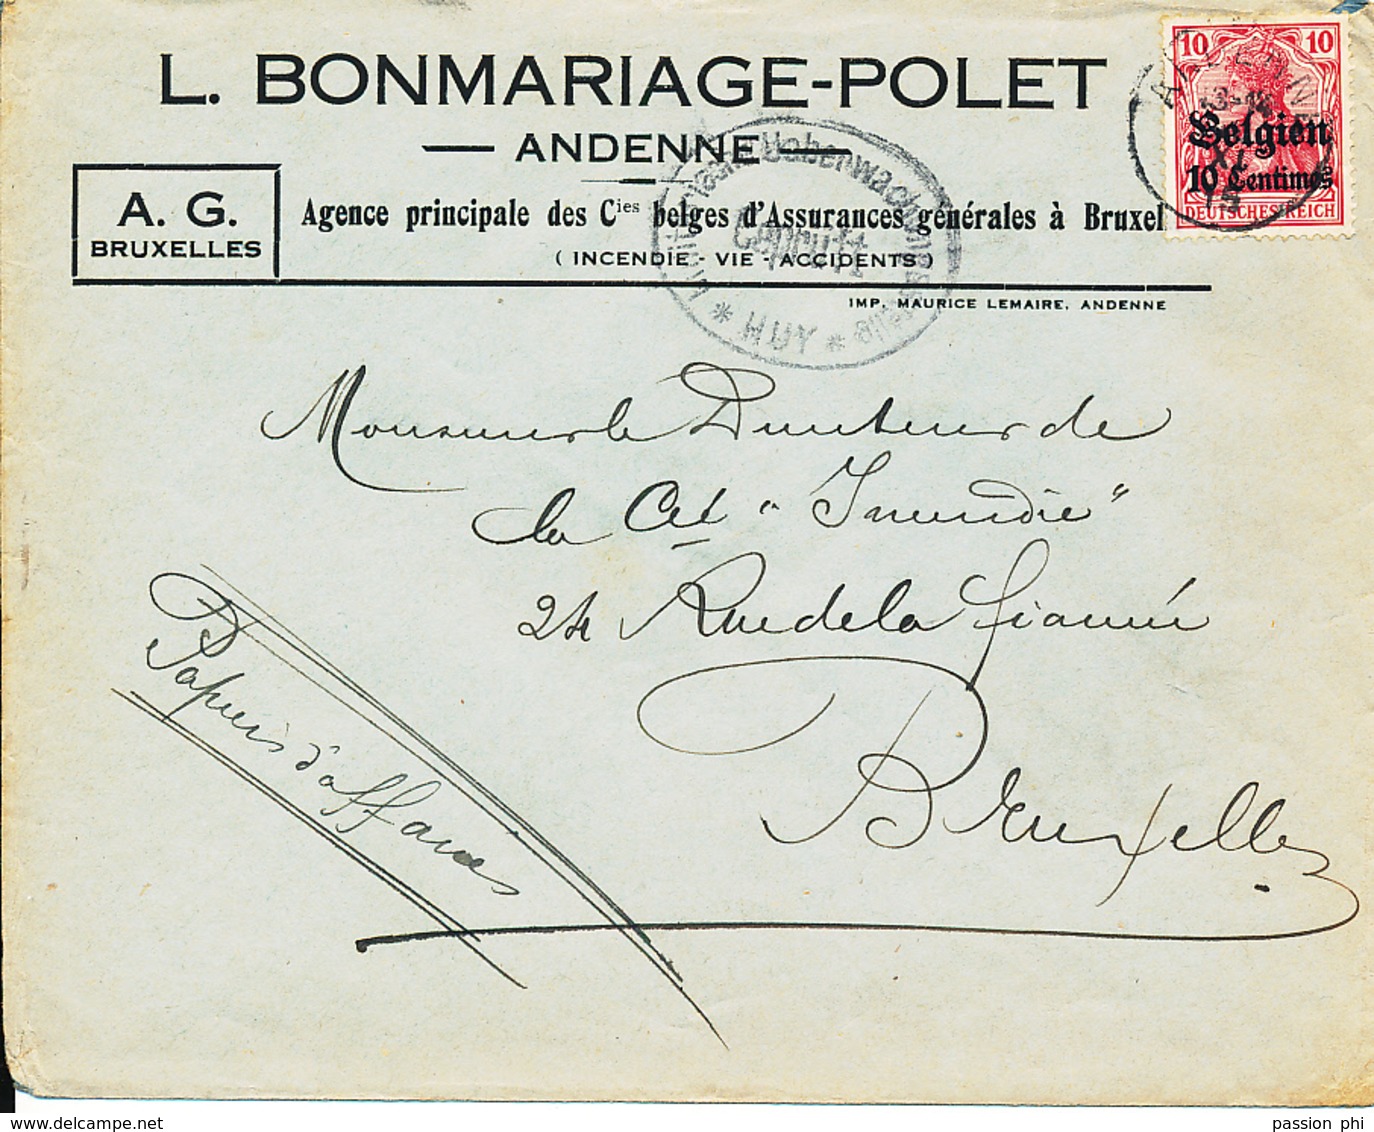 L. BONMARIAGE-POLET
— ANDENNE —
A. G.
BRUXELLES
Agence principale des Cies belges d'Assurances générales à Bruxel
( INCENDIE - VIE - ACCIDENTS )
IMP. MAURICE LEMAIRE, ANDENNE
10 10
Belgien
10 Centimes
DEUTSCHES REICH
ANDENNE
13-14
XI
15
Militärische Ueberwachungsstelle
Geprüft
* HUY *
Monsieur le Directeur de
la Cie "Incendie"
24 Rue de la Fiancée
Bruxelles
Papiers d'affaires
passion phi